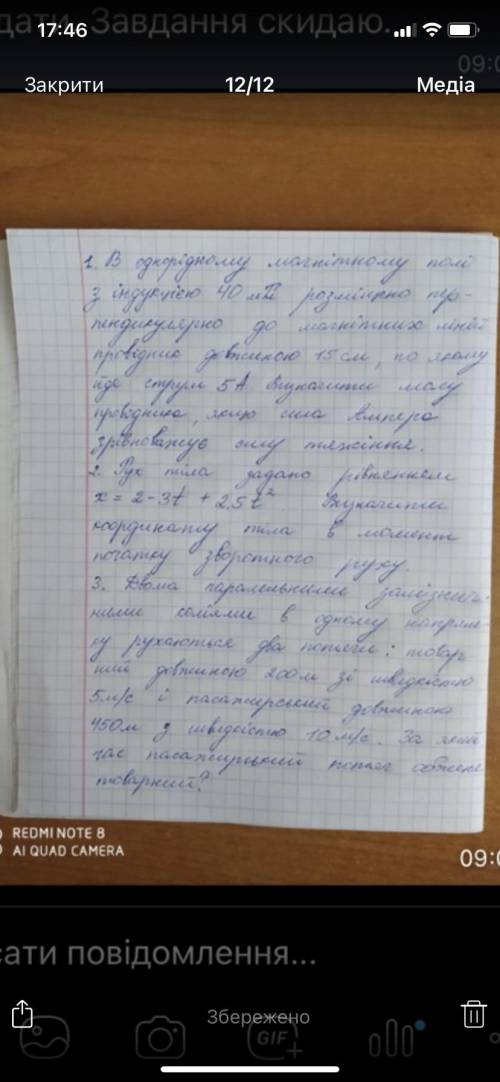 дати. Завдання скидаю.
17:46
09:0
Закрити 12/12 Медіа
1. В однорідному магнітному полі
з індукцією 40 мТл розміщено пер-
пендикулярно до магнітних ліній
провідник довжиною 15 см, по якому
йде струм 5А. Визначити масу
провідника, якщо сила Ампера
зрівноважує силу тяжіння.
2. Рух тіла задано рівнянням
x = 2 - 3t + 2,5t² Визначити
координату тіла в момент
початку зворотного руху.
3. Двома паралельними залізнич-
ними коліями в одному напрям-
ку рухаються два потяги: товар-
ний довжиною 200м зі швидкістю
5м/с і пасажирський довжиною
450м з швидкістю 10м/с. За який
час пасажирський потяг обжене
товарний?
REDMI NOTE 8
AI QUAD CAMERA
09:0
сати повідомлення...
Збережено
GIF